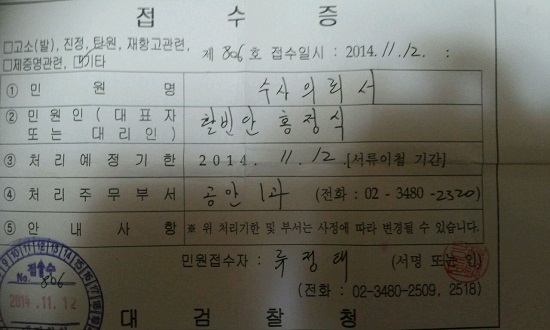 접 수 증
□고소(발), 진정, 탄원, 재항고관련,
□제증명관련, ☑기타
제 806 호 접수일시 : 2014. 11. 12. :
① 민 원 명 수사의뢰서
② 민 원 인 ( 대 표 자 또 는 대 리 인 ) 활빈단 홍정식
③ 처 리 예 정 기 한 2014. 11. 12. [서류이첩 기간]
④ 처 리 주 무 부 서 공안 1과 (전화 : 02 - 3480 - 2320)
⑤ 안 내 사 항 ※ 위 처리기한 및 부서는 사정에 따라 변경될 수 있습니다.
민원접수자 : 류정태 (서명 또는 인)
(전화 : 02-3480-2509, 2518)
접수
No. 806
2014. 11. 12
대 검 찰 청